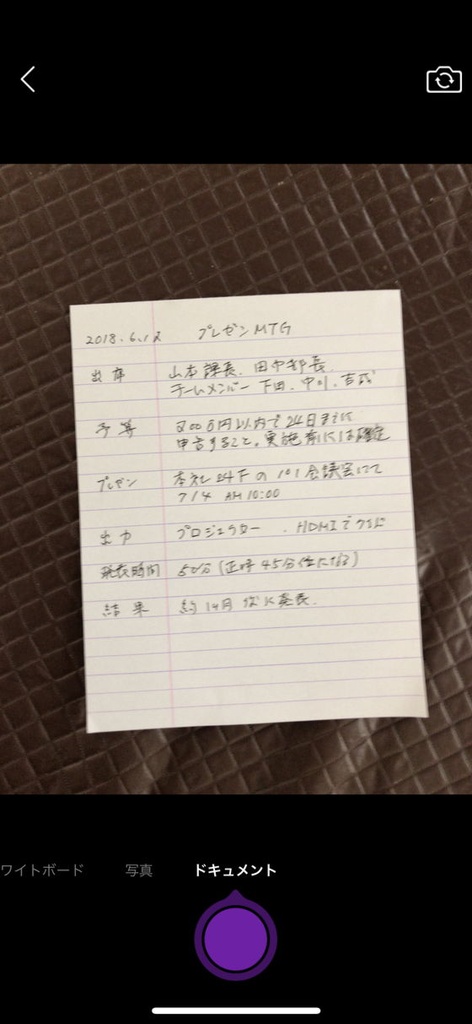 2018.6.12 プレゼンMTG
出席 山本課長、田中部長
チームメンバー 下田、中川、吉成
予算 300万円以内で24日までに
申告すること。実施前には確定
プレゼン 本社24Fの101会議室にて
7/4 AM10:00
出力 プロジェクター、HDMIで
発表時間 50分(正味45分位
結果 約1ヶ月後に発表。
ワイトボード 写真 ドキュメント